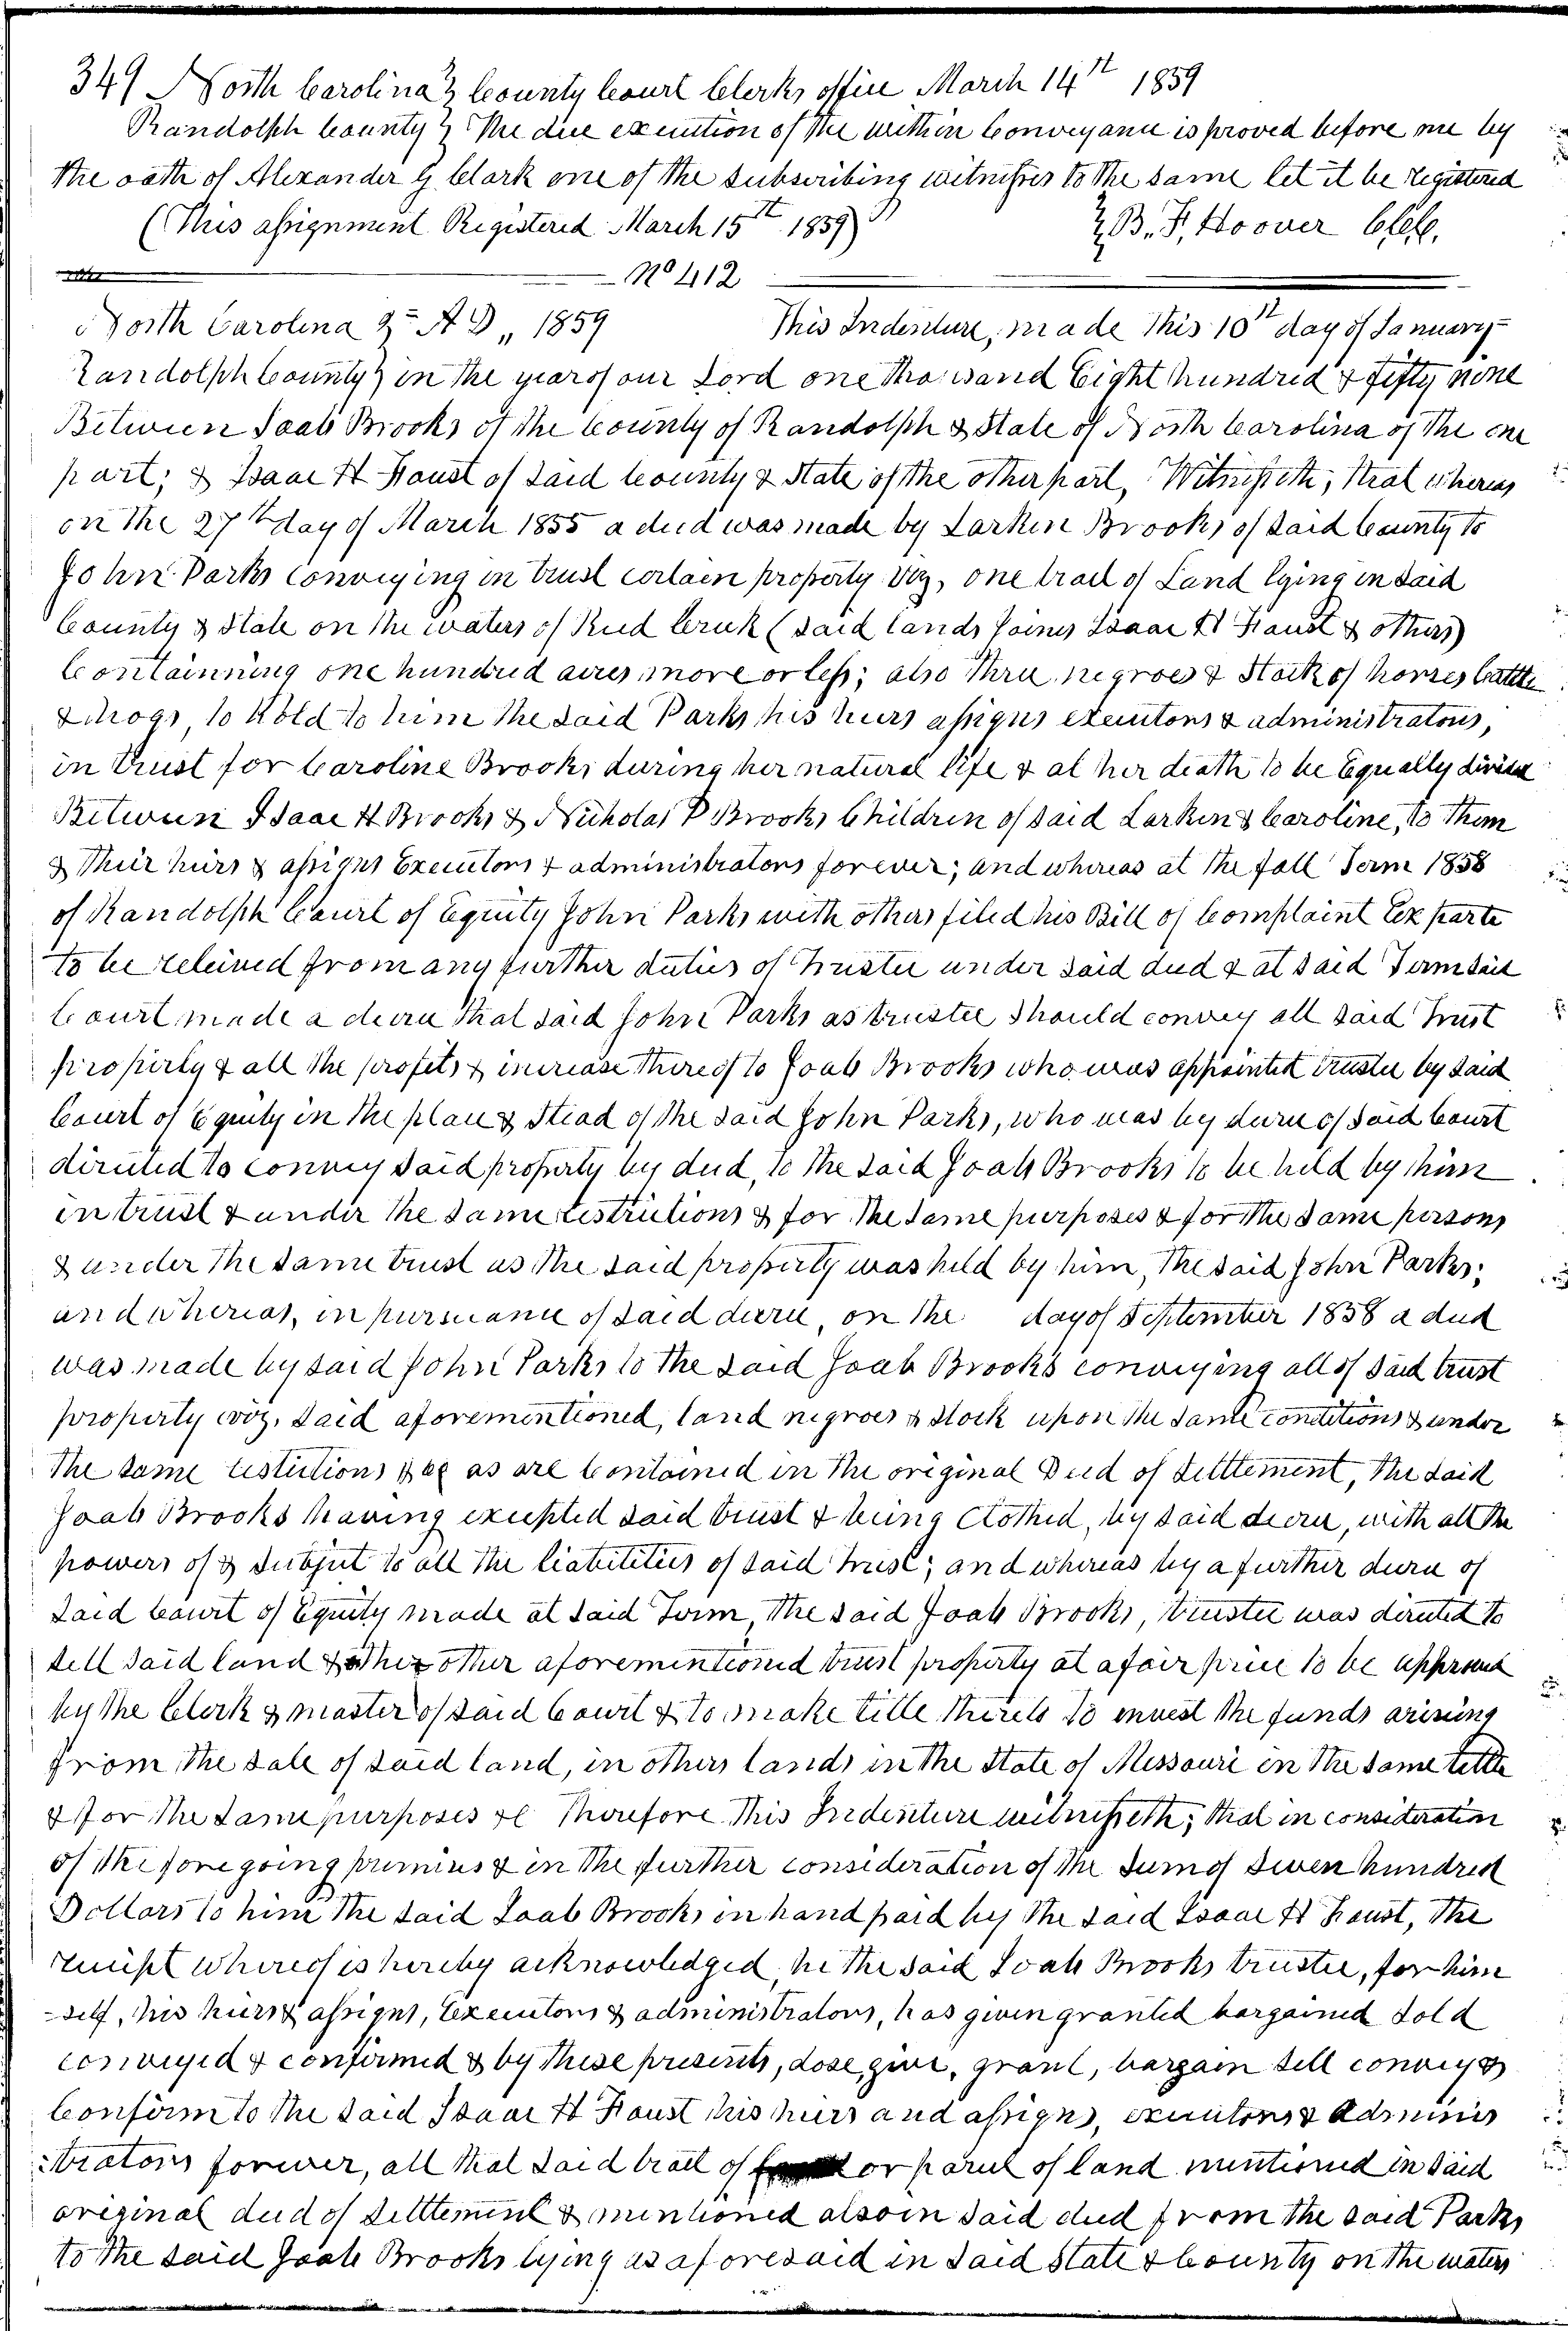 349 North Carolina } County Court Clerks office March 14th 1859
Randolph County } The due execution of the within Conveyance is proved before me by
the oath of Alexander G Clark one of the subscribing witnesses to the same let it be registered
(This assignment Registered March 15th 1859) } B. F. Hoover C.C.C.
No 412
North Carolina } A D,, 1859 This Indenture, made this 10th day of January
Randolph County } in the year of our Lord one thousand Eight hundred & fifty nine
Between Joab Brooks of the County of Randolph & State of North Carolina of the one
part; & Isaac H Foust of said County & State of the other part, Witnesseth; that whereas
on the 27th day of March 1855 a deed was made by Larkin Brooks of said County to
John Parks Conveying in trust certain property viz, one tract of Land lying in said
County & State on the waters of Reed Creek (said lands Joines Isaac H Foust & others)
Containning one hundred acres more or less; also three negroes & Stock of horses Cattle
& hogs, to hold to him the said Parks his heirs assigns executors & administrators,
in trust for Caroline Brooks during her natural life & at her death to be Equally divided
Between Isaac H Brooks & Nicholas P Brooks Children of said Larkin & Caroline, to them
& their heirs & assigns Executors & administrators forever; and whereas at the fall Term 1858
of Randolph Court of Equity John Parks with others filed his Bill of Complaint Ex parte
to be releived from any further duties of Trustee under said deed & at said Term said
Court made a decree that said John Parks as trustee should convey all said Trust
property & all the profits & increase thereof to Joab Brooks who was appointed trustee by said
Court of Equity in the place & Stead of the said John Parks, who was by decree of said Court
directed to convey said property by deed, to the said Joab Brooks to be held by him
in trust & under the same restrictions & for the same purposes & for the same persons
& under the same trust as the said property was held by him, the said John Parks;
and whereas, in pursuance of said decree, on the day of September 1858 a deed
was made by said John Parks to the said Joab Brooks conveying all of said trust
property viz, said aforementioned, land negroes & stock upon the same conditions & under
the same restictions &c as are Contained in the original Deed of Settlement, the said
Joab Brooks having excepted said trust & being Clothed, by said decree, with all the
powers of & subject to all the liabilities of said trust; and whereas by a further decree of
said Court of Equity made at said Term, the said Joab Brooks, trustee was directed to
sell said land & other aforementioned trust property at a fair price to be approved
by the Clerk & master of said Court & to make title thereto to invest the funds arising
from the sale of said land, in others lands in the State of Missouri in the same tittle
& for the same purposes &c Therefore This Indenture witnesseth; that in consideration
of the foregoing premises & in the further consideration of the sum of seven hundred
Dollars to him the said Joab Brooks in hand paid by the said Isaac H Foust, the
receipt whereof is hereby acknowledged, he the said Joab Brooks trustee, for him
-self, his heirs & assigns, Executors & administrators, has given granted bargained sold
conveyed & confirmed & by these presents, dose, give, grant, bargain sell convey &
Confirm to the said Isaac H Foust his heirs and assigns, executors & Adminis
:trators forever, all that said tract of or parcel of land mentioned in said
original deed of settlement & mentioned also in said deed from the said Parks
to the said Joab Brooks lying as aforesaid in said State & County on the waters